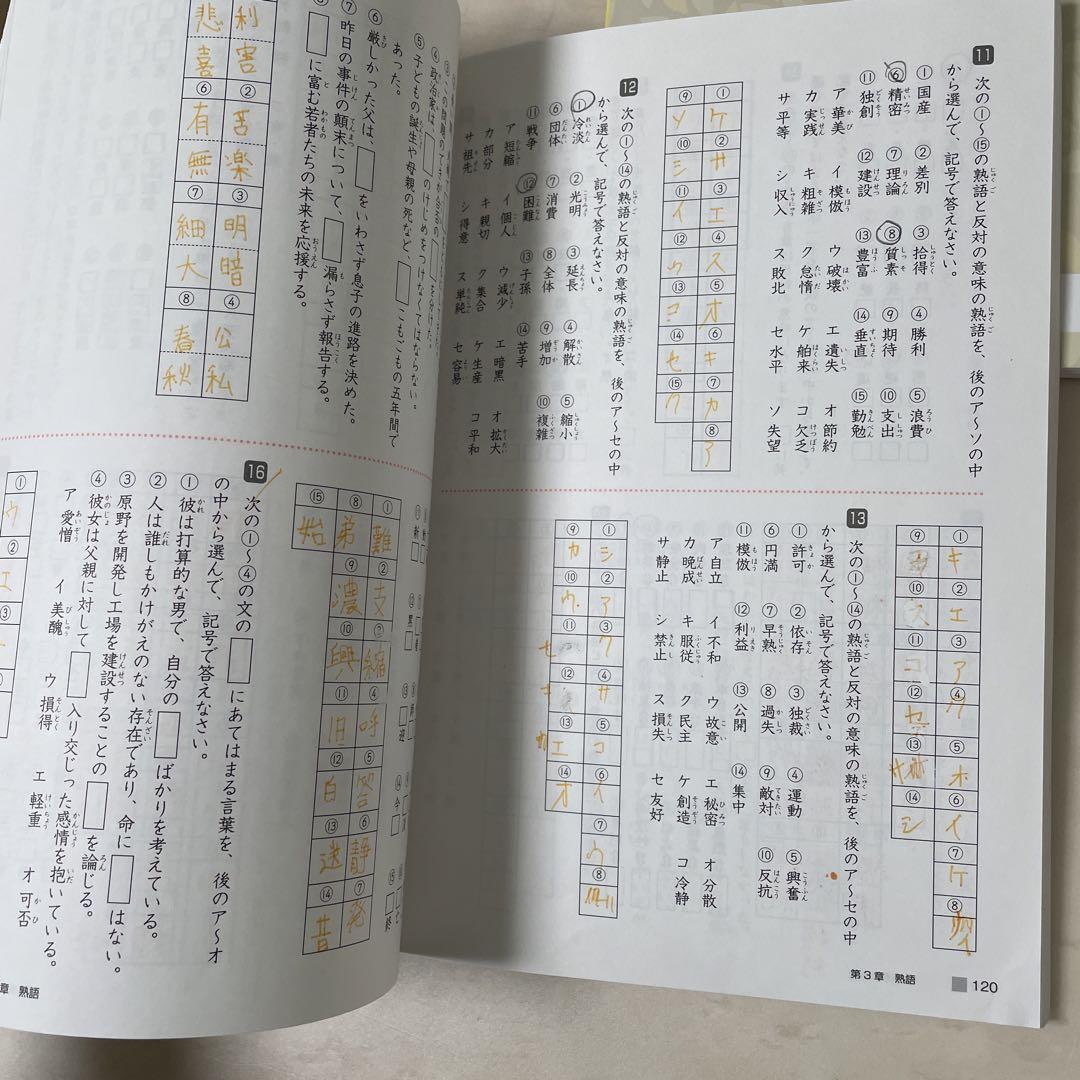 11 次の①〜⑮の熟語と反対の意味の熟語を、後のア〜ソの中
から選んで、記号で答えなさい。
①国産 ②差別 ③拾得 ④勝利 ⑤浪費
⑥精密 ⑦理論 ⑧質素 ⑨期待 ⑩支出
⑪独創 ⑫建設 ⑬豊富 ⑭垂直 ⑮勤勉
ア 華美 イ 模倣 ウ 破壊 エ 遺失 オ 節約
カ 実践 キ 粗雑 ク 怠惰 ケ 舶来 コ 欠乏
サ 平等 シ 収入 ス 敗北 セ 水平 ソ 失望
① ケ ② サ ③ エ ④ ス ⑤ オ ⑥ キ ⑦ カ ⑧ ア
⑨ ソ ⑩ シ ⑪ イ ⑫ ウ ⑬ コ ⑭ セ ⑮ ク
12 次の①〜⑭の熟語と反対の意味の熟語を、後のア〜セの中
から選んで、記号で答えなさい。
①冷淡 ②光明 ③延長 ④解散 ⑤縮小
⑥団体 ⑦消費 ⑧全体 ⑨増加 ⑩複雑
⑪戦争 ⑫困難 ⑬子孫 ⑭苦手
ア 短縮 イ 個人 ウ 減少 エ 暗黒 オ 拡大
カ 部分 キ 親切 ク 集合 ケ 生産 コ 平和
サ 祖先 シ 得意 ス 単純 セ 容易
① キ ② エ ③ ア ④ ク ⑤ オ ⑥ イ ⑦ ケ ⑧
⑨ ⑩ ス ⑪ コ ⑫ セ ⑬ サ ⑭ シ
13 次の①〜⑭の熟語と反対の意味の熟語を、後のア〜セの中
から選んで、記号で答えなさい。
①許可 ②依存 ③独裁 ④運動 ⑤興奮
⑥円満 ⑦早熟 ⑧過失 ⑨敵対 ⑩反抗
⑪模倣 ⑫利益 ⑬公開 ⑭集中
ア 自立 イ 不和 ウ 故意 エ 秘密 オ 分散
カ 晩成 キ 服従 ク 民主 ケ 創造 コ 冷静
サ 静止 シ 禁止 ス 損失 セ 友好
① シ ② ア ③ ク ④ サ ⑤ コ ⑥ イ ⑦ ウ ⑧
⑨ カ ⑩ ウ ⑪ セ ⑫ キ ⑬ エ ⑭ オ
第3章 熟語
120
④政治家は のけじめをつけなくてはならない。
⑤子どもの誕生や母親の死など、 こもごもの五年間で
あった。
⑥厳しかった父は、 をいわさず息子の進路を決めた。
⑦昨日の事件の顛末について、 漏らさず報告する。
に富む若者たちの未来を応援する。
利害 ② 苦楽 ③ 明暗 ④ 公私
悲喜 ⑥ 有無 ⑦ 細大 ⑧ 春秋
① 難 ② 支 縮 ④ 呼 ⑤ 答 ⑥ 静 ⑦ 発
⑧ 弟 ⑨ 濃 ⑩ 興 ⑪ 旧 ⑫ 白 ⑬ 送 ⑭ 昔
⑮ 始
16 次の①〜④の文の にあてはまる言葉を、後のア〜オ
の中から選んで、記号で答えなさい。
①彼は打算的な男で、自分の ばかりを考えている。
②人は誰しもかけがえのない存在であり、命に はない。
③原野を開発し工場を建設することの を論じる。
④彼女は父親に対して 入り交じった感情を抱いている。
ア 愛憎 イ 美醜 ウ 損得 エ 軽重 オ 可否
① ウ ② エ ③
章 熟語